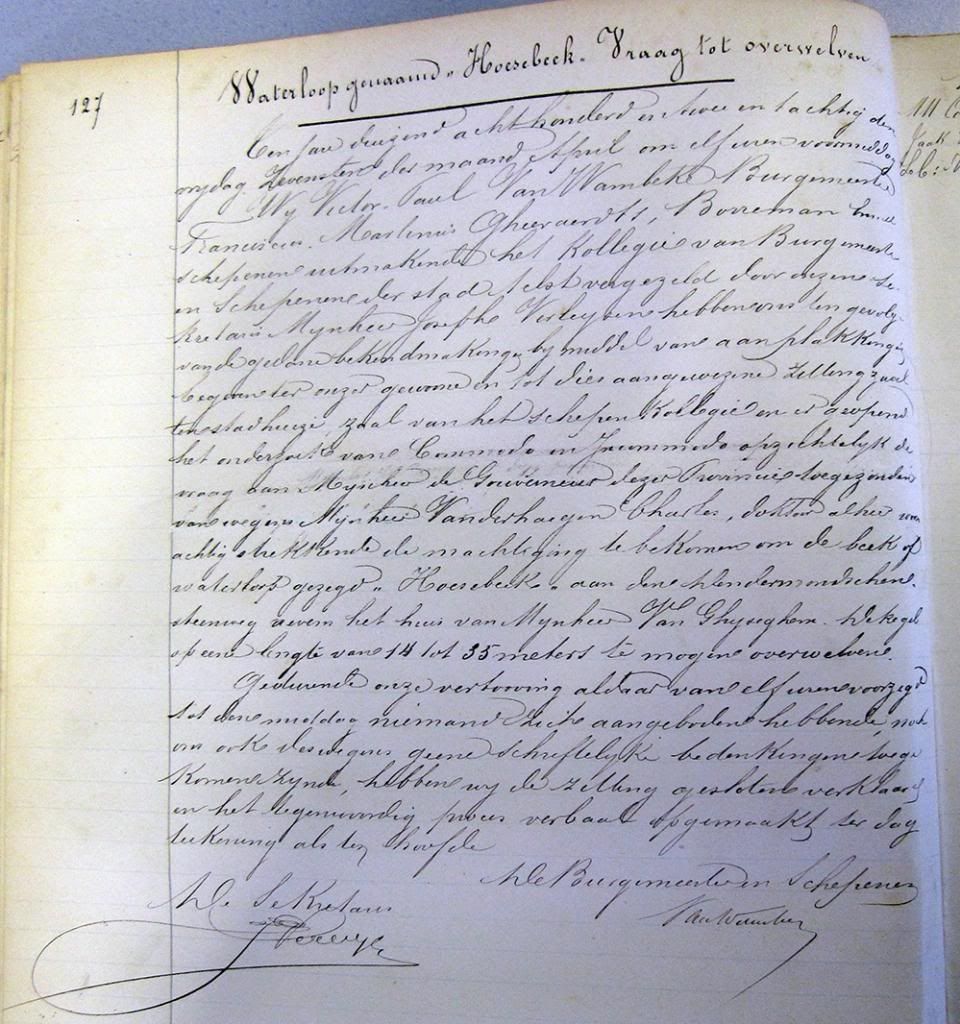 127
Waterloop genaamd „ Hoesebeek. Vraag tot overwelven
Een jare duizend acht honderd en twee en tachtig den
vrydag zevensten der maand April om elf uren voormiddag
Wy Victor. Paul Van Wambeke Burgemeester
Franciscus. Martinus Gheeraerdts, Borreman
schepenen uitmakende het Kollegie van Burgemeester
en Schepenen der stad Aelst vergezeld door onzen se-
kretaris Mynheer Josephe Verleysen hebben ons ten gevolge
van de gedane bekendmaking, by middel van aanplakking
begeven ter onzer gewoone en tot dies aangewezene zittingzaal
ten stadhuize, zaal van het schepen Kollegie en er geopend
het onderzoek van Commodo en Incommodo opzichtelyk de
vraag aan Mynheer de Gouverneur dezer Provincie toegezonden
van wegens Mynheer Vanderhaegen Charles, doktor alhier woon
achtig strekkende de machtiging te bekomen om de beek of
waterloop gezegd „ Hoesebeek „ aan den Dendermondschen
steenweg nevens het huis van Mynheer Van Ghyseghem. De
op eene lengte van 14 tot 35 meters te mogen overwelven.
Gedurende onze vertooving aldaar van elf uren voorzegd
tot den middag niemand zich aangeboden hebbende, noch
ons ook deswegens geene schriftelyke bedenkingen toege
komen zynde, hebben wy de zitting gesloten verklaard
en het tegenwoordig proces verbaal opgemaakt ter dag
teekening als ten hoofde
De Burgemeester en Schepenen
De Sekretaris
VanWambeke